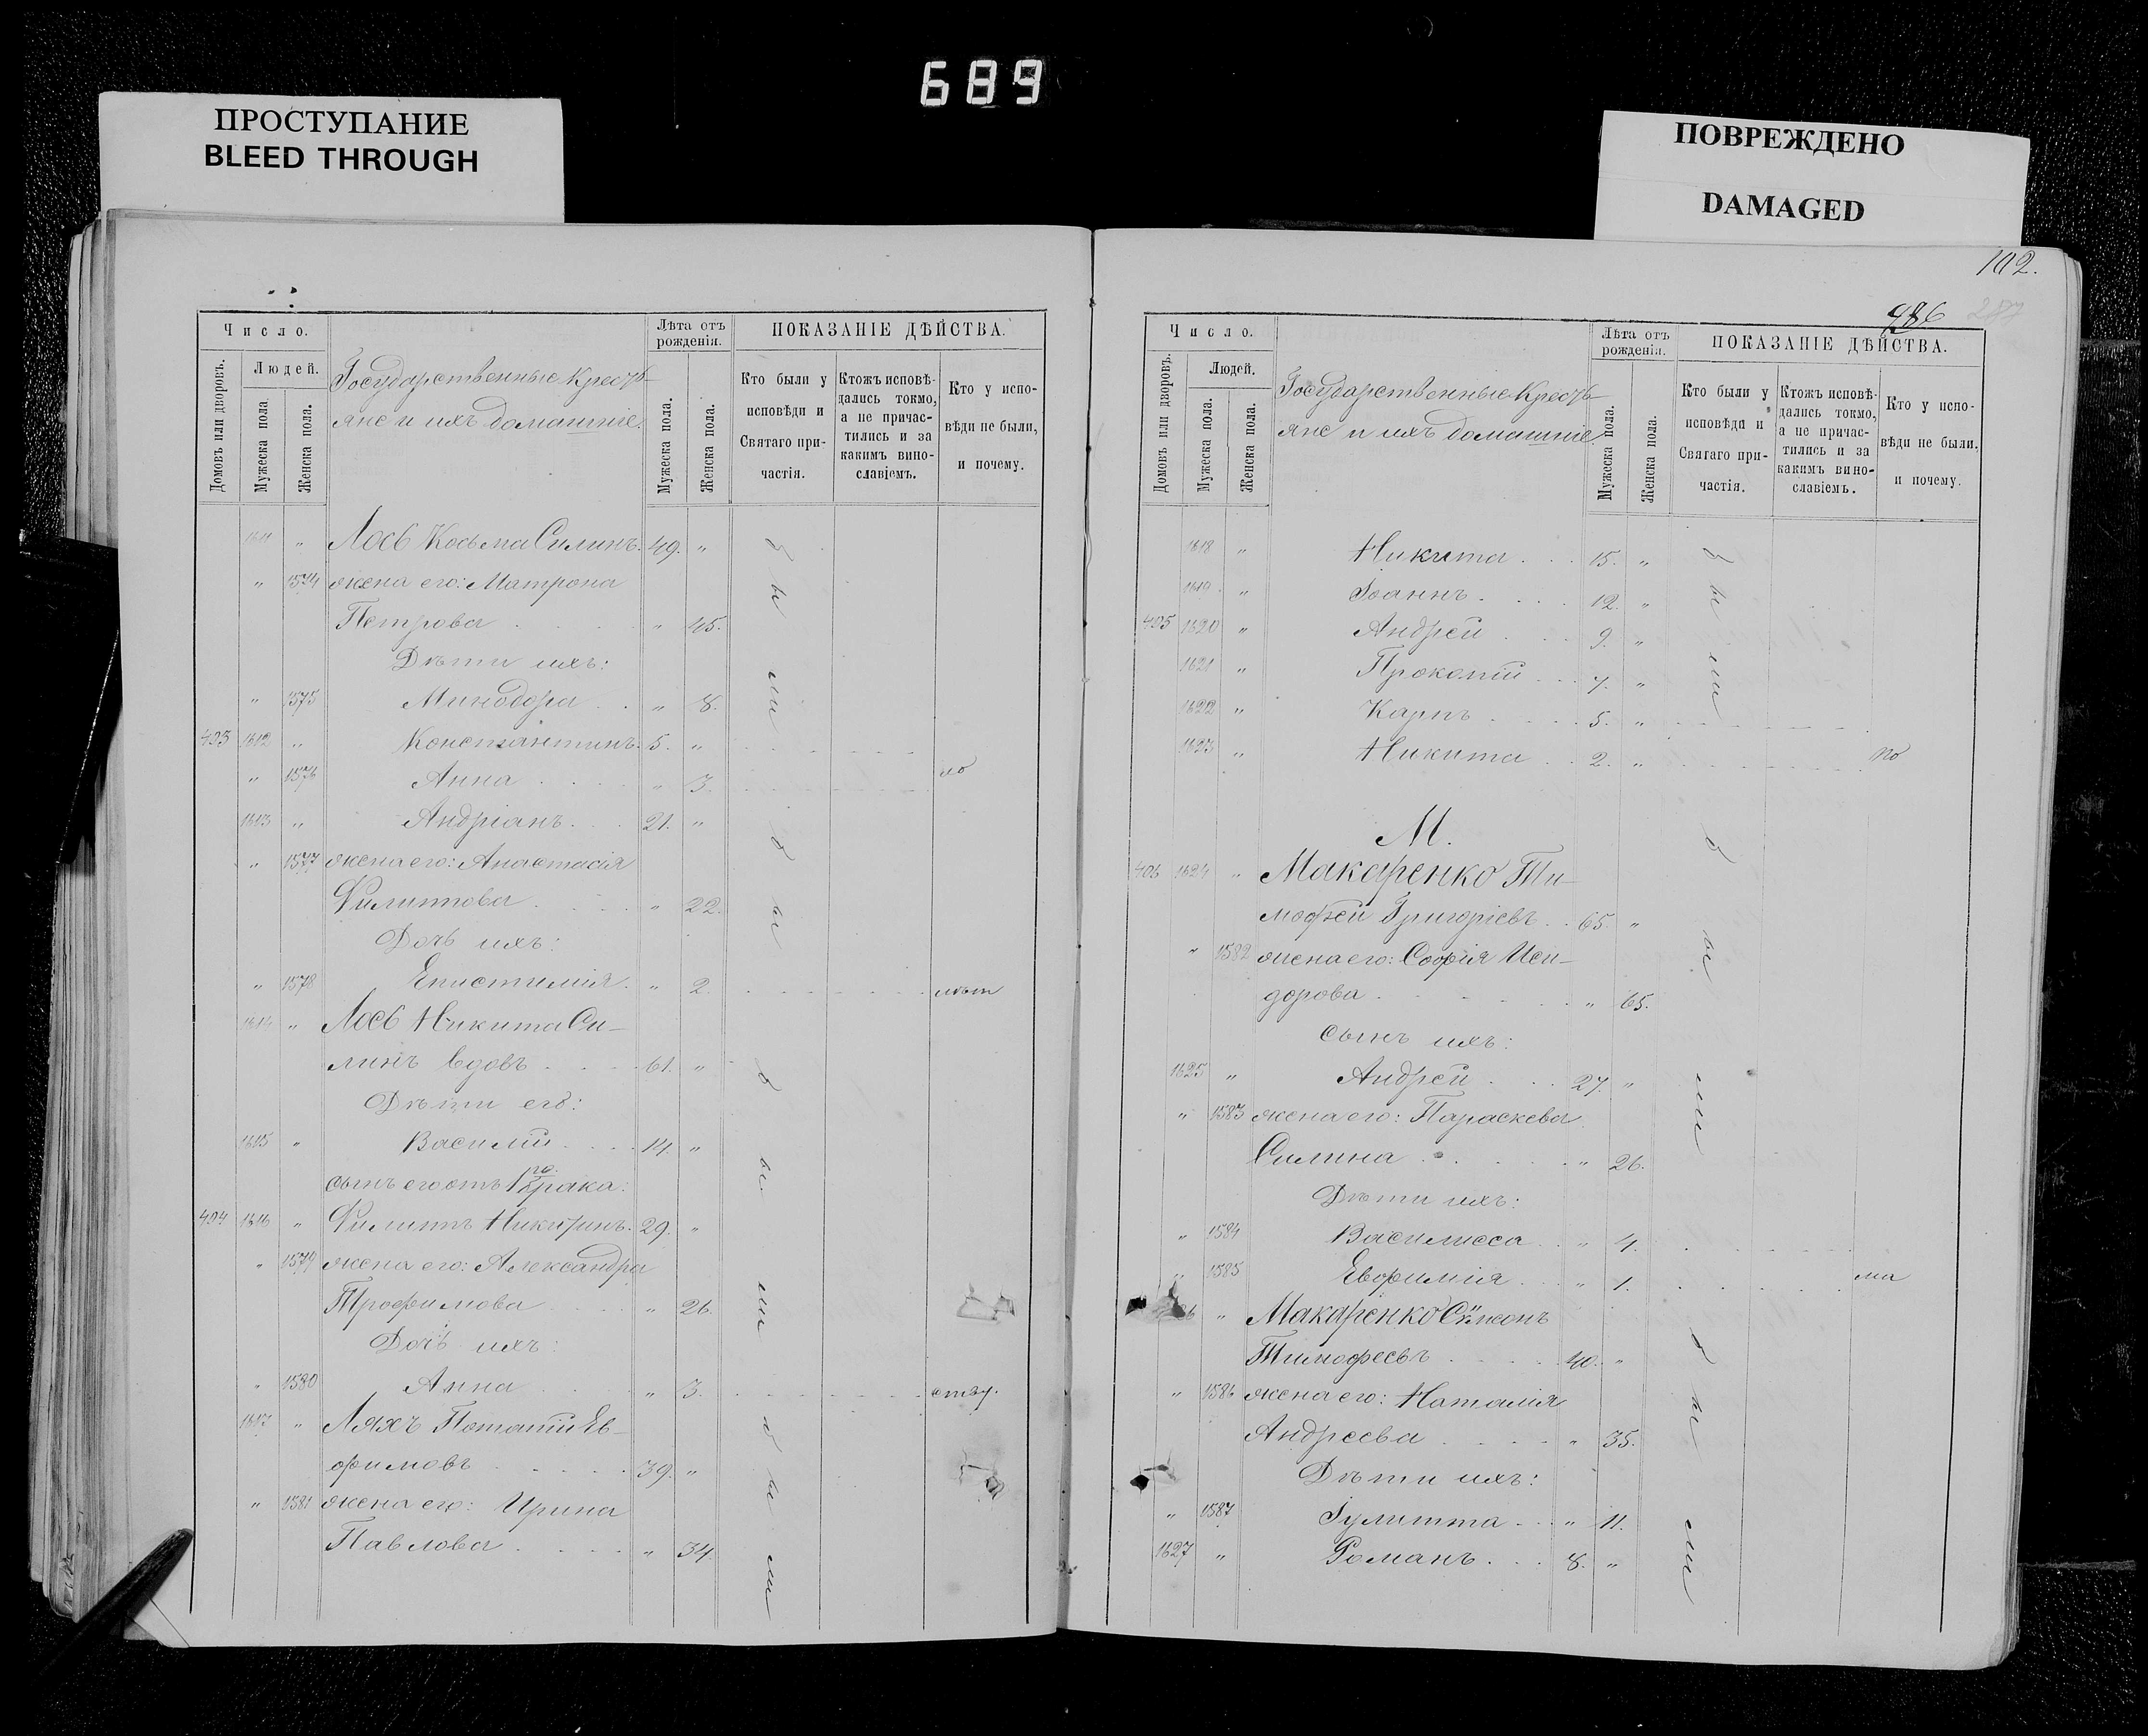 689
ПРОСТУПАНИЕ
BLEED THROUGH
ПОВРЕЖДЕНО
DAMAGED
Число.
Домовъ или дворовъ.
Людей.
Мужеска пола.
Женска пола.
Государственные Кресть-
яне и ихъ домашніе.
Лѣта отъ
рожденія.
Мужеска пола.
Женска пола.
ПОКАЗАНІЕ ДѢЙСТВА.
Кто были у
исповѣди и
Святаго при-
частія.
Ктожъ исповѣ-
дались токмо,
а не причас-
тились и за
какимъ вино-
славіемъ.
Кто у испо-
вѣди не были,
и почему.
1611 " Лось Косьма Силинъ. 49. "
" 1574 жена его: Матрона
Петрова " 45.
Дѣти ихъ:
" 1575 Минодора " 8.
1612 " Константинъ. 5. "
" 1576 Анна " 3.
1613 " Андріанъ. 21. "
" 1577 жена его: Анастасія
Филиппова " 22.
Дочь ихъ:
" 1578 Епистимія. " 2.
1614 " Лось Никита Си-
линъ вдовъ 61. "
Дѣти его:
1615 " Василій 14. "
сынъ его отъ 1го брака:
494 1616 " Филиппъ Никитинъ. 29. "
" 1579 жена его: Александра
Трофимова " 26.
Дочь ихъ:
" 1580 Анна " 3.
1617 " Ляхъ Потапій Ев-
фимовъ 39. "
" 1581 жена его: Ирина
Павлова " 34.
были
были
были
были
102.
486
Число.
Домовъ или дворовъ.
Людей.
Мужеска пола.
Женска пола.
Государственные Кресть-
яне и ихъ домашніе.
Лѣта отъ
рожденія.
Мужеска пола.
Женска пола.
ПОКАЗАНІЕ ДѢЙСТВА.
Кто были у
исповѣди и
Святаго при-
частія.
Ктожъ исповѣ-
дались токмо,
а не причас-
тились и за
какимъ вино-
славіемъ.
Кто у испо-
вѣди не были,
и почему.
1618 " Никита 15. "
1619 " Іоаннъ 12. "
495 1620 " Андрей 9. "
1621 " Прокопій 7. "
1622 " Карпъ 5. "
1623 " Никита 2. " по
М.
1624 " Макаренко Ти-
мофей Григоріевъ 65. "
" 1582 жена его: Софія Иси-
дорова " 65.
Сынъ ихъ:
1625 " Андрей 27. "
" 1583 жена его: Параскева
Силина " 26.
Дѣти ихъ:
" 1584 Василисса " 4.
" 1585 Евфимія " 1. ма
" Макаренко Сѵмеонъ
Тимофеевъ 40. "
" 1586 жена его: Наталія
Андреева " 35.
Дѣти ихъ:
" 1587 Іулитта " 11.
1627 " Романъ 8. "
были
были
были